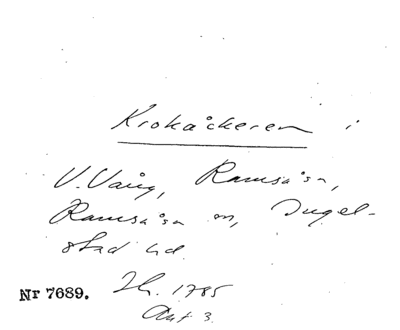 Krokåckeren i
V. Vång, Ramsåsa,
Ramsåsa sn, Ingel-
stad hd.
Nr 7689. Sk. 1785
Akt 3.